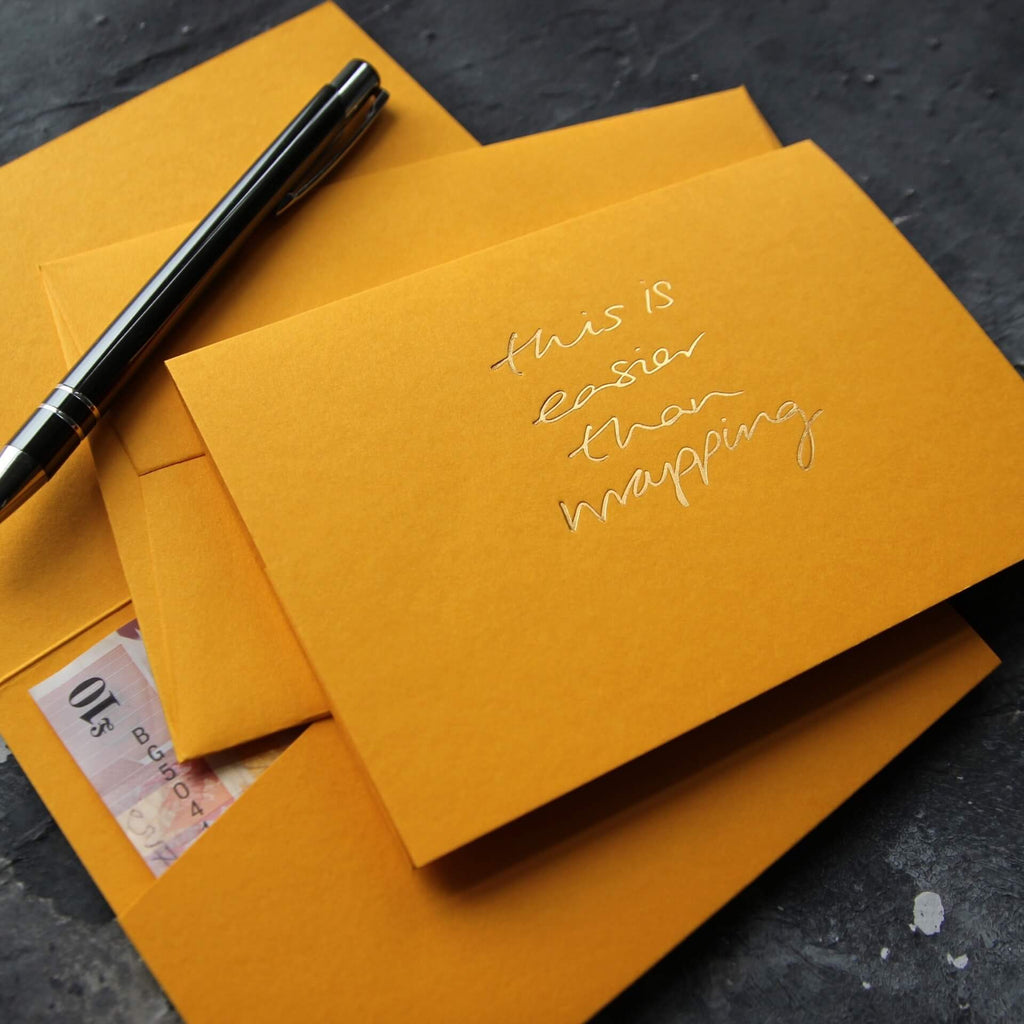 this is
easier
than
wrapping
£10
BG504